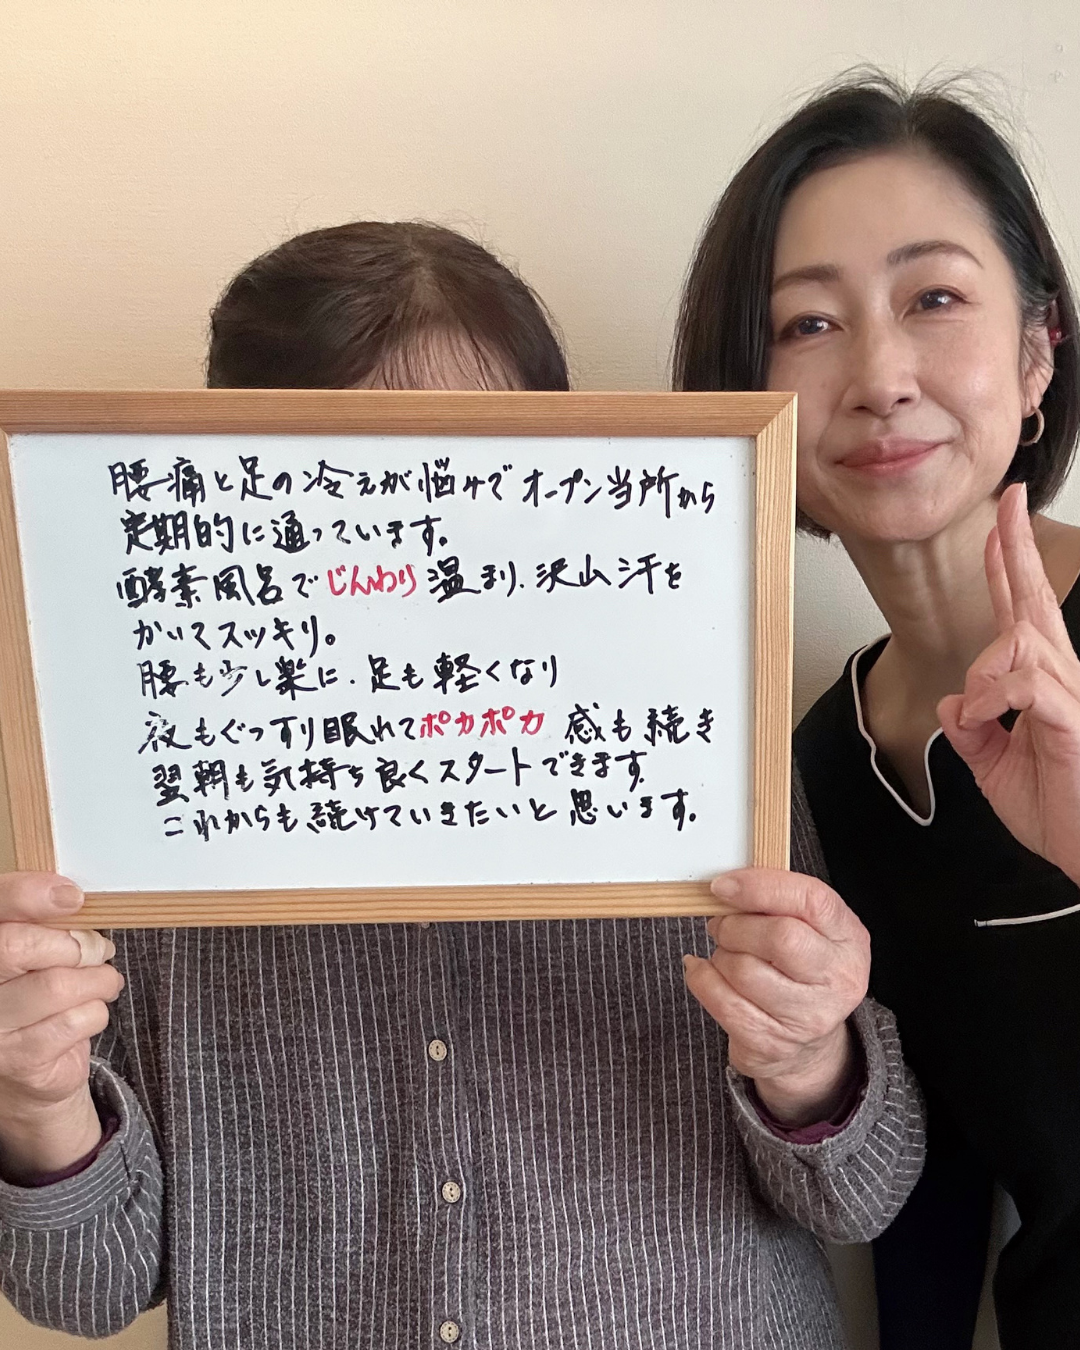 腰痛と足の冷えが悩みでオープン当所から
定期的に通っています。
酵素風呂でじんわり温まり、沢山汗を
かいてスッキリ。
腰も少し楽に、足も軽くなり
夜もぐっすり眠れてポカポカ感も続き
翌朝も気持ち良くスタートできます。
これからも続けていきたいと思います。